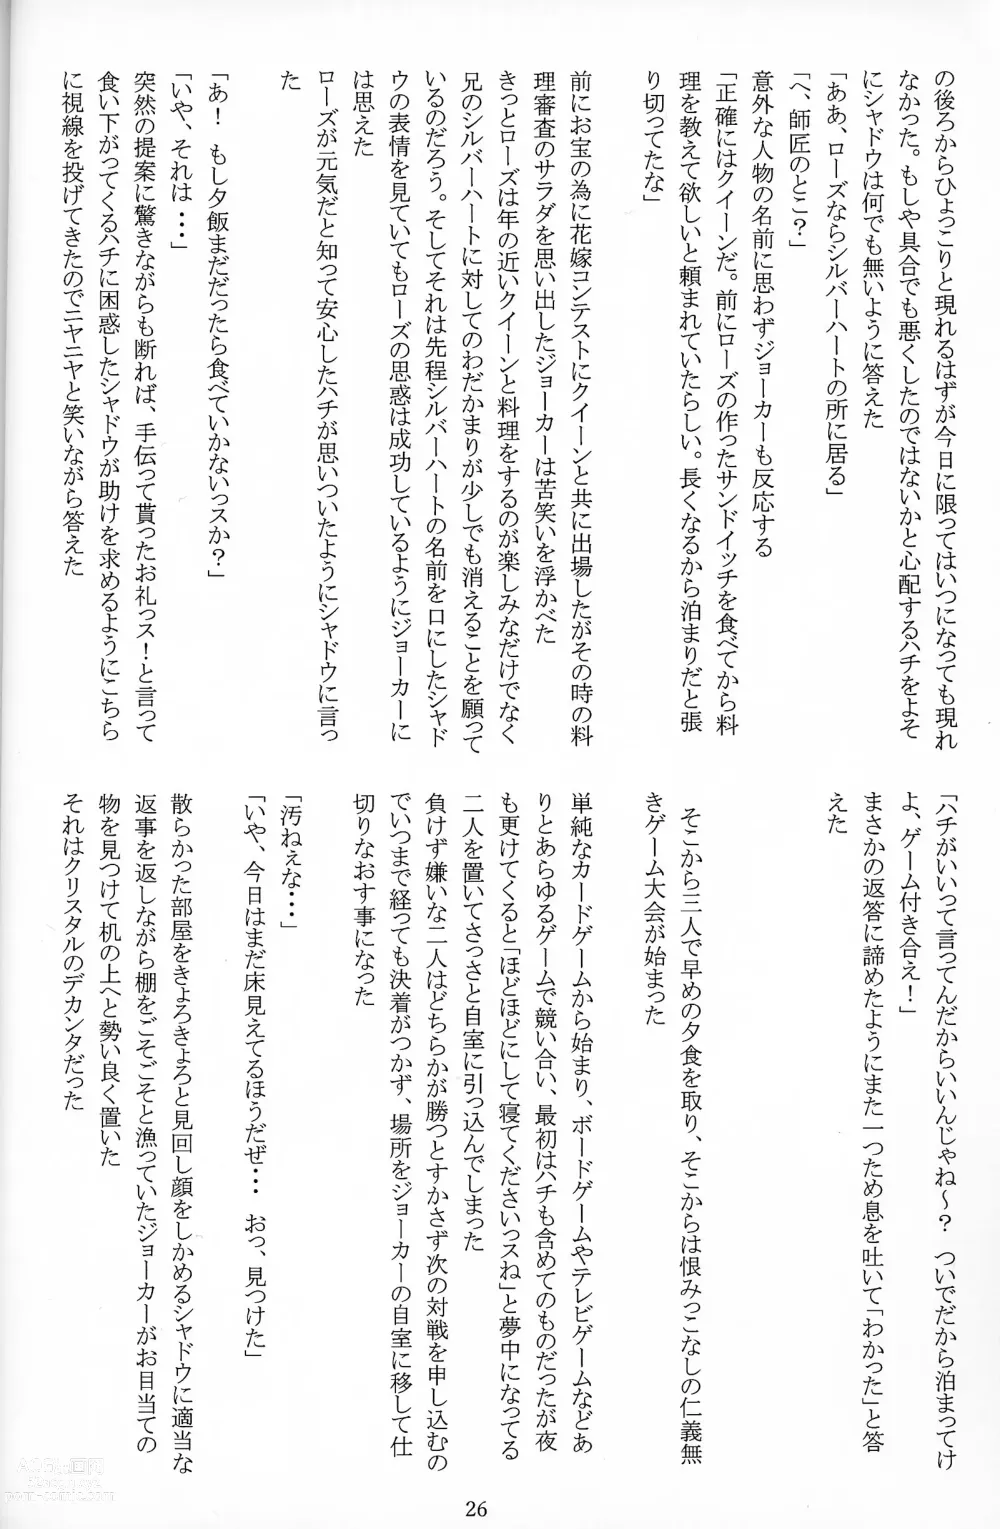 の後ろからひょっこりと現れるはずが今日に限ってはいつになっても現れ
なかった。もしや具合でも悪くしたのではないかと心配するハチをよそ
にシャドウは何でも無いように答えた
「ああ、ローズならシルバーハートの所に居る」
「へ、師匠のとこ？」
意外な人物の名前に思わずジョーカーも反応する
「正確にはクイーンだ。前にローズの作ったサンドイッチを食べてから料
理を教えて欲しいと頼まれていたらしい。長くなるから泊まりだと張
り切ってたな」
前にお宝の為に花嫁コンテストにクイーンと共に出場したがその時の料
理審査のサラダを思い出したジョーカーは苦笑いを浮かべた
きっとローズは年の近いクイーンと料理をするのが楽しみなだけでなく
兄のシルバーハートに対してのわだかまりが少しでも消えることを願って
いるのだろう。そしてそれは先程シルバーハートの名前を口にしたシャド
ウの表情を見ていてもローズの思惑は成功しているようにジョーカーに
は思えた
ローズが元気だと知って安心したハチが思いついたようにシャドウに言っ
た
「あ！　もし夕飯まだだったら食べていかないっスか？」
「いや、それは・・・」
突然の提案に驚きながらも断れば、手伝って貰ったお礼っス！と言って
食い下がってくるハチに困惑したシャドウが助けを求めるようにこちら
に視線を投げてきたのでニヤニヤと笑いながら答えた
「ハチがいいって言ってんだからいいんじゃね～？　ついでだから泊まってけ
よ、ゲーム付き合え！」
まさかの返答に諦めたようにまた一つため息を吐いて「わかった」と答
えた
そこから三人で早めの夕食を取り、そこからは恨みっこなしの仁義無
きゲーム大会が始まった
単純なカードゲームから始まり、ボードゲームやテレビゲームなどあ
りとあらゆるゲームで競い合い、最初はハチも含めてのものだったが夜
も更けてくると「ほどほどにして寝てくださいっスね」と夢中になってる
二人を置いてさっさと自室に引っ込んでしまった
負けず嫌いな二人はどちらかが勝つとすかさず次の対戦を申し込むの
でいつまで経っても決着がつかず、場所をジョーカーの自室に移して仕
切りなおす事になった
「汚ねぇな・・・」
「いや、今日はまだ床見えてるほうだぜ・・・　おっ、見つけた」
散らかった部屋をきょろきょろと見回し顔をしかめるシャドウに適当な
返事を返しながら棚をごそごそと漁っていたジョーカーがお目当ての
物を見つけて机の上へと勢い良く置いた
それはクリスタルのデカンタだった
26